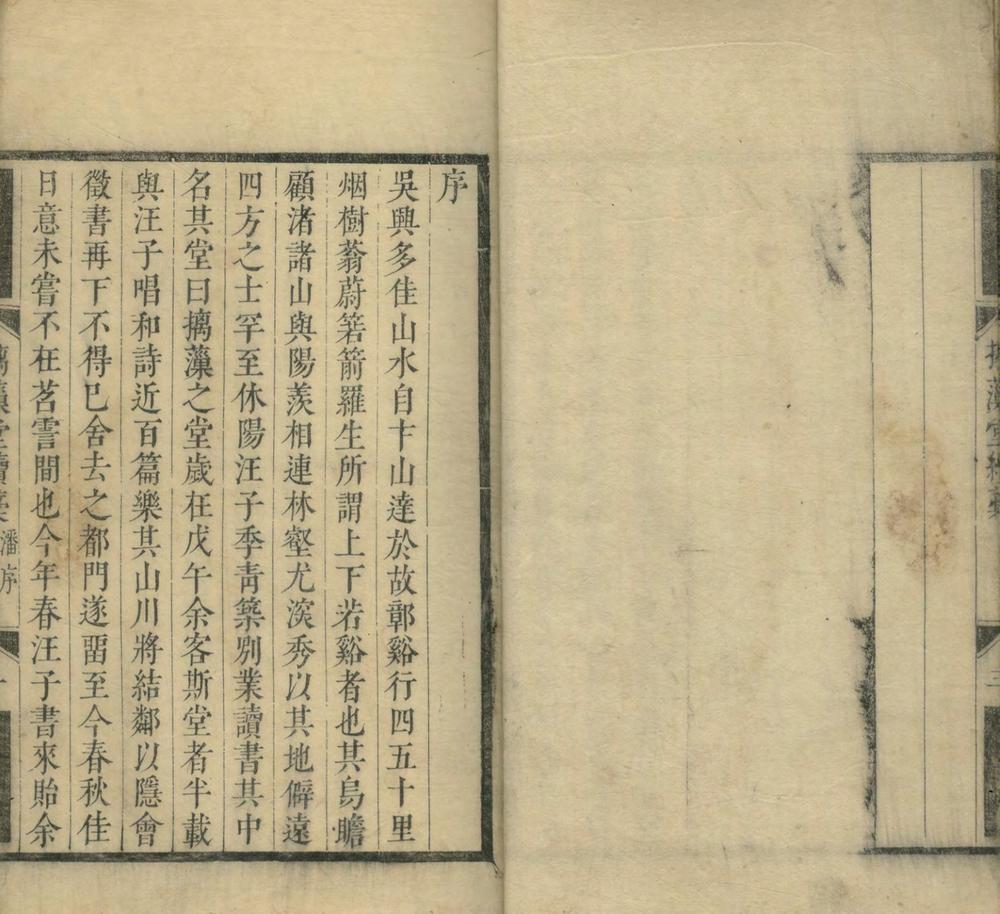 序
吳興多佳山水自卞山達於故鄣谿行四五十里
烟樹蓊蔚箬箭羅生所謂上下若谿者也其島瞻
顧渚諸山與陽羨相連林壑尤㴱秀以其地僻遠
四方之士罕至休陽汪子季青築別業讀書其中
名其堂曰摛藻之堂歲在戊午余客斯堂者半載
與汪子唱和詩近百篇樂其山川將結鄰以隱會
徵書再下不得已舍去之都門遂畱至今春秋佳
日意未嘗不在苕霅間也今年春汪子書來貽余
摛藻堂續稾 潘序